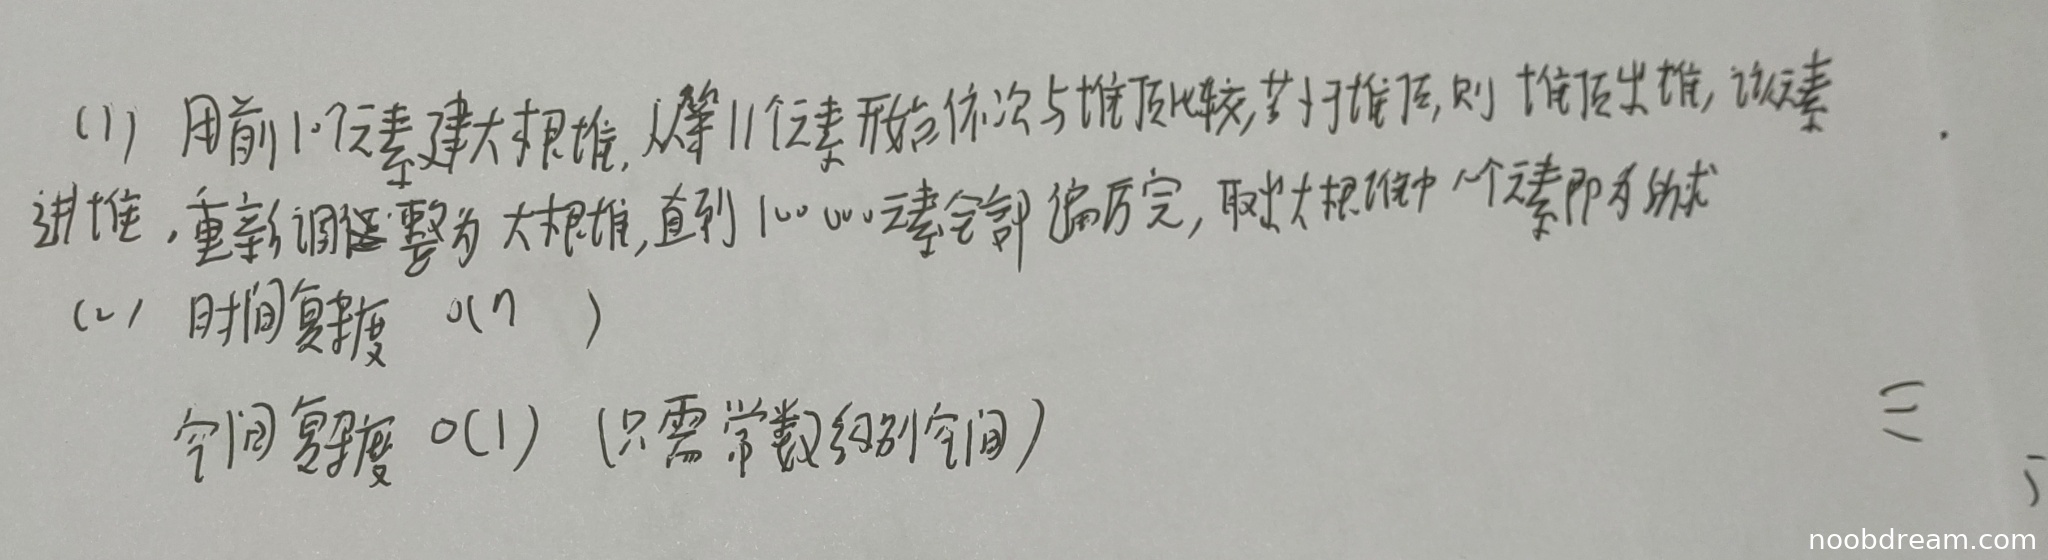 (1) 用前10个元素建大根堆,从第11个元素开始依次与堆顶比较,若小于堆顶,则堆顶出堆,该元素
进堆,重新调整为大根堆,直到100000元素全部遍历完,取出大根堆中10个元素即为所求
(2) 时间复杂度 O(n )
空间复杂度 O(1) (只需常数级别空间)
noobdream.com